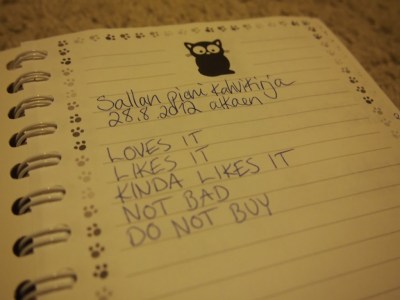 Sallan pieni kahvikirja
28.8.2012 alkaen
LOVES IT
LIKES IT
KINDA LIKES IT
NOT BAD
DO NOT BUY